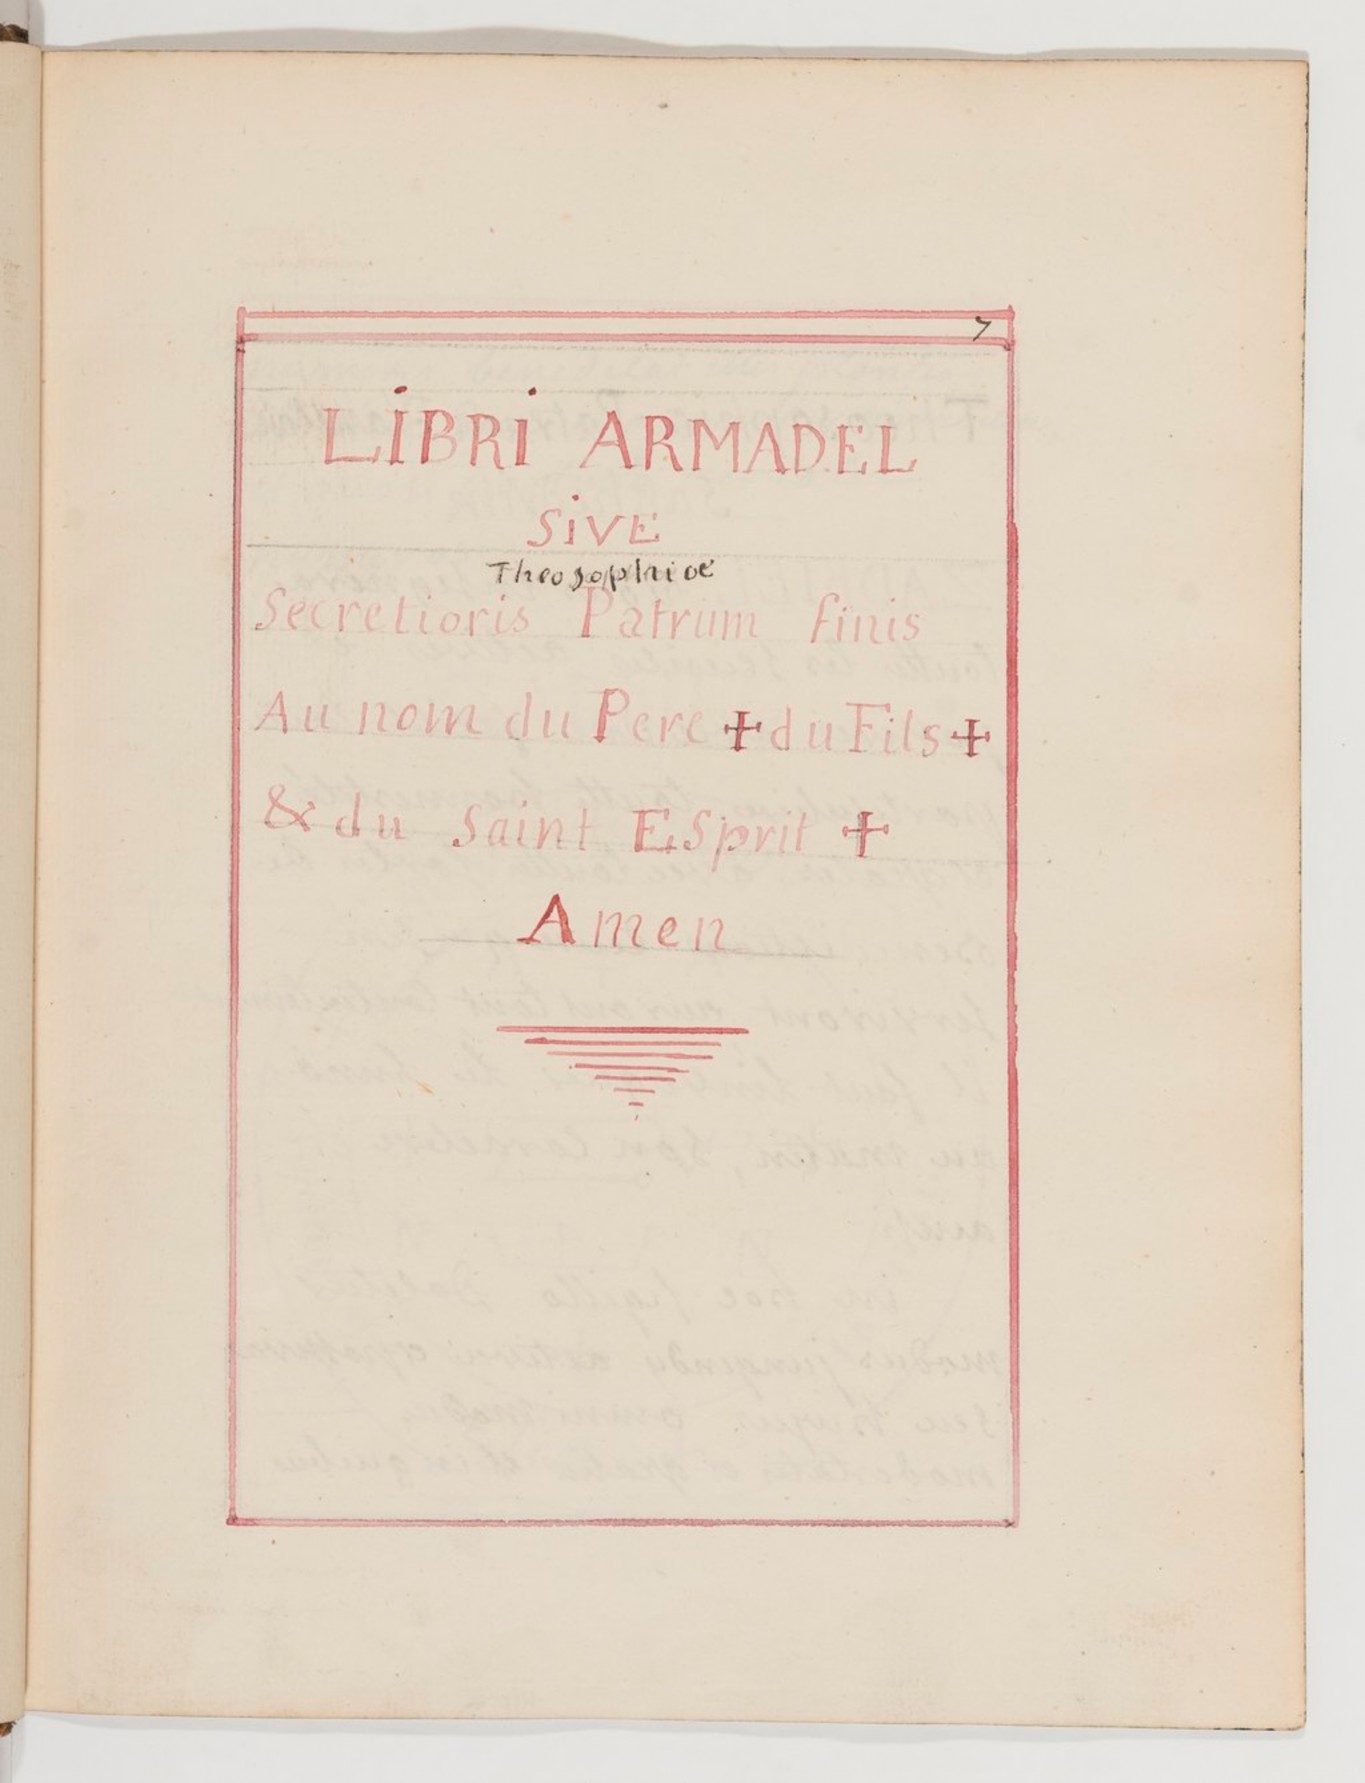 7
LIBRI ARMADEL
SIVE
Theosophiœ
Secretioris Patrum finis
Au nom du Pere + du Fils +
& du Saint ESprit +
Amen